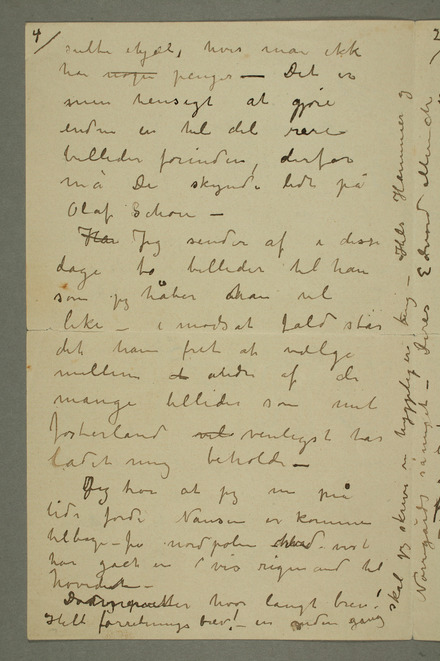 4/
sulte ihjæl, hvis man ikk
har nogen penge – Det er
min hensigt at gjøre
endnu en hel del rare
billeder forinden, derfor
må De skynde lidt på
Olaf Schou –
Har Jeg sender af i disse
dage to billeder til ham
som jeg håber han vil
like – i modsat fald står
det ham frit at vælge
mellem andre af de
mange billeder som mit
fosterland vil venligst har
ladet mig beholde –
Jeg har at jeg nu på
lide fordi Nansen er kommen
tilbage fra nordpolen
har gået en vis rigmand til
hovedet –
hvor langt brev!
Helt forretningsbrev! – en anden gang
skal jeg skrive en hyggelig en – Hils Hammer og
Norsguds så meget – Deres Edvard Munch
2